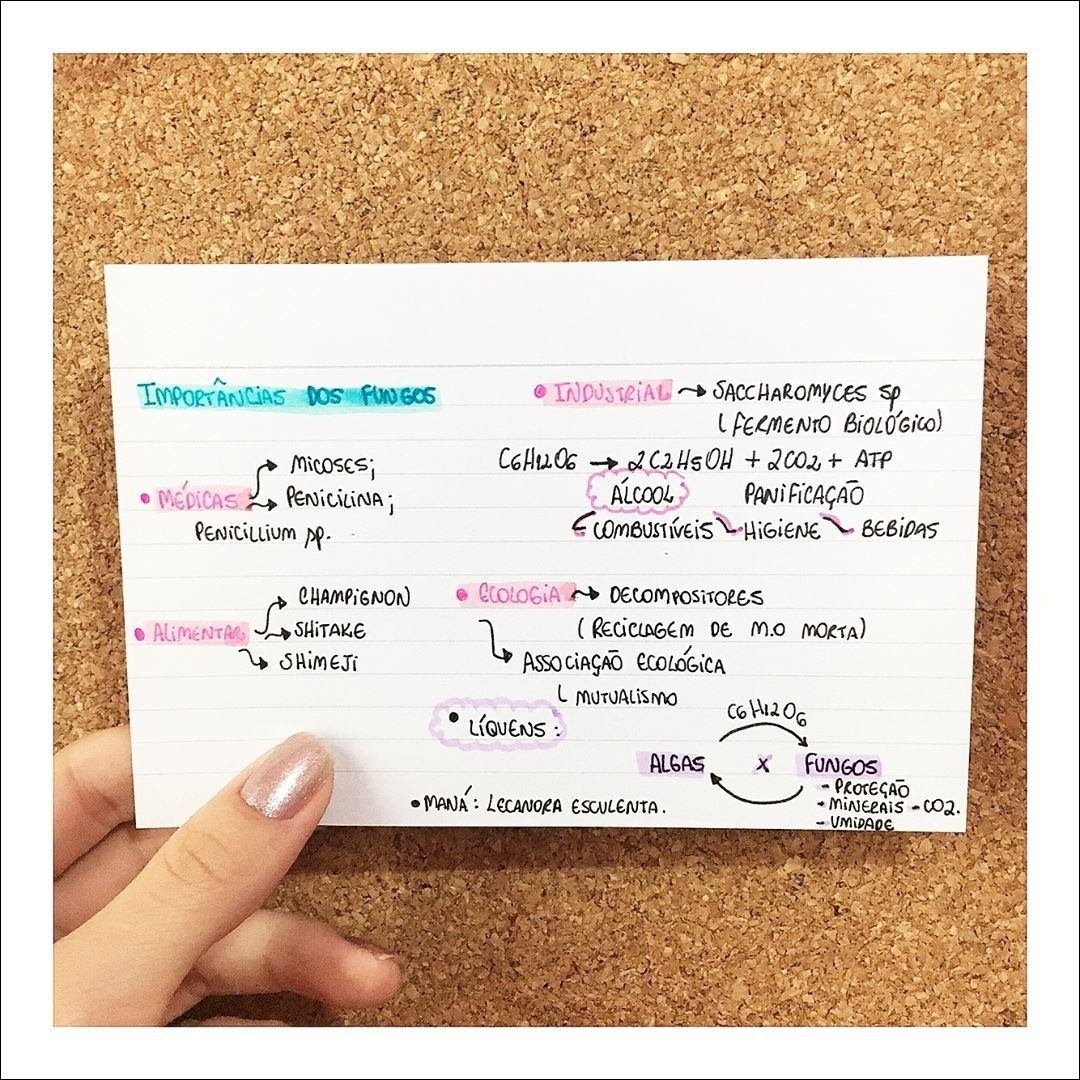 IMPORTÂNCIAS DOS FUNGOS
• MÉDICAS → MICOSES;
→ PENICILINA;
PENICILLIUM sp.
• ALIMENTAR → CHAMPIGNON
→ SHITAKE
→ SHIMEJI
• INDUSTRIAL → SACCHAROMYCES sp
(FERMENTO BIOLÓGICO)
C6H12O6 → 2C2H5OH + 2CO2 + ATP
ÁLCOOL PANIFICAÇÃO
COMBUSTÍVEIS HIGIENE BEBIDAS
• ECOLOGIA → DECOMPOSITORES
(RECICLAGEM DE M.O MORTA)
→ ASSOCIAÇÃO ECOLÓGICA
└ MUTUALISMO
• LÍQUENS:
C6H12O6
ALGAS X FUNGOS
- PROTEÇÃO
- MINERAIS - CO2.
- UMIDADE
• MANÁ: LECANORA ESCULENTA.